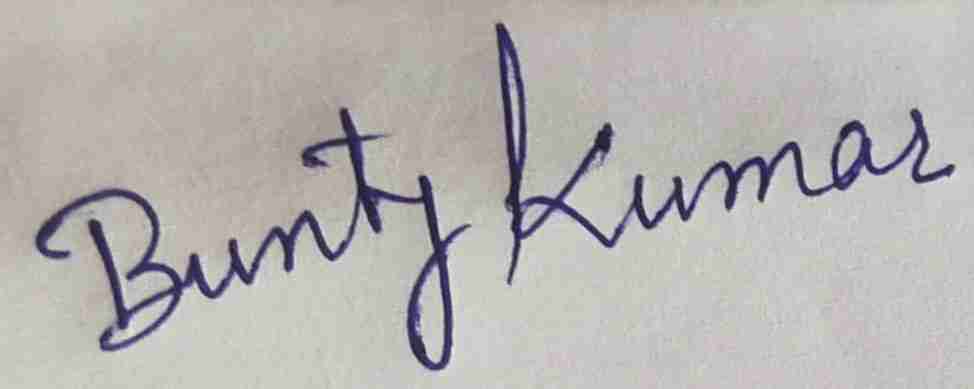 Bunty Kumar